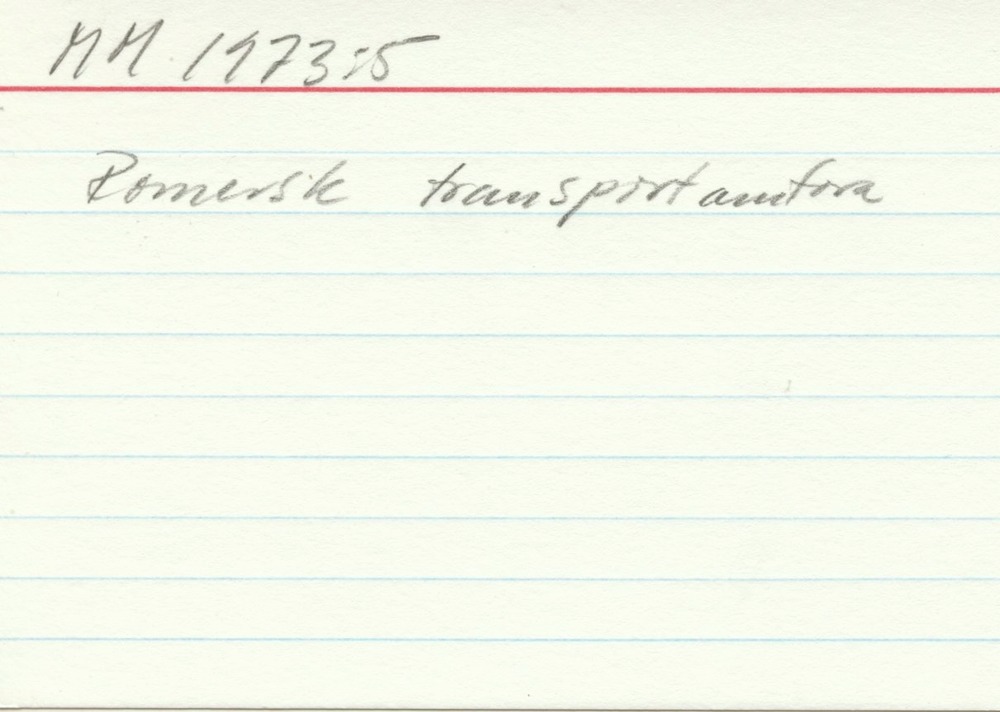 MM 1973:5
Romersk transportamfora